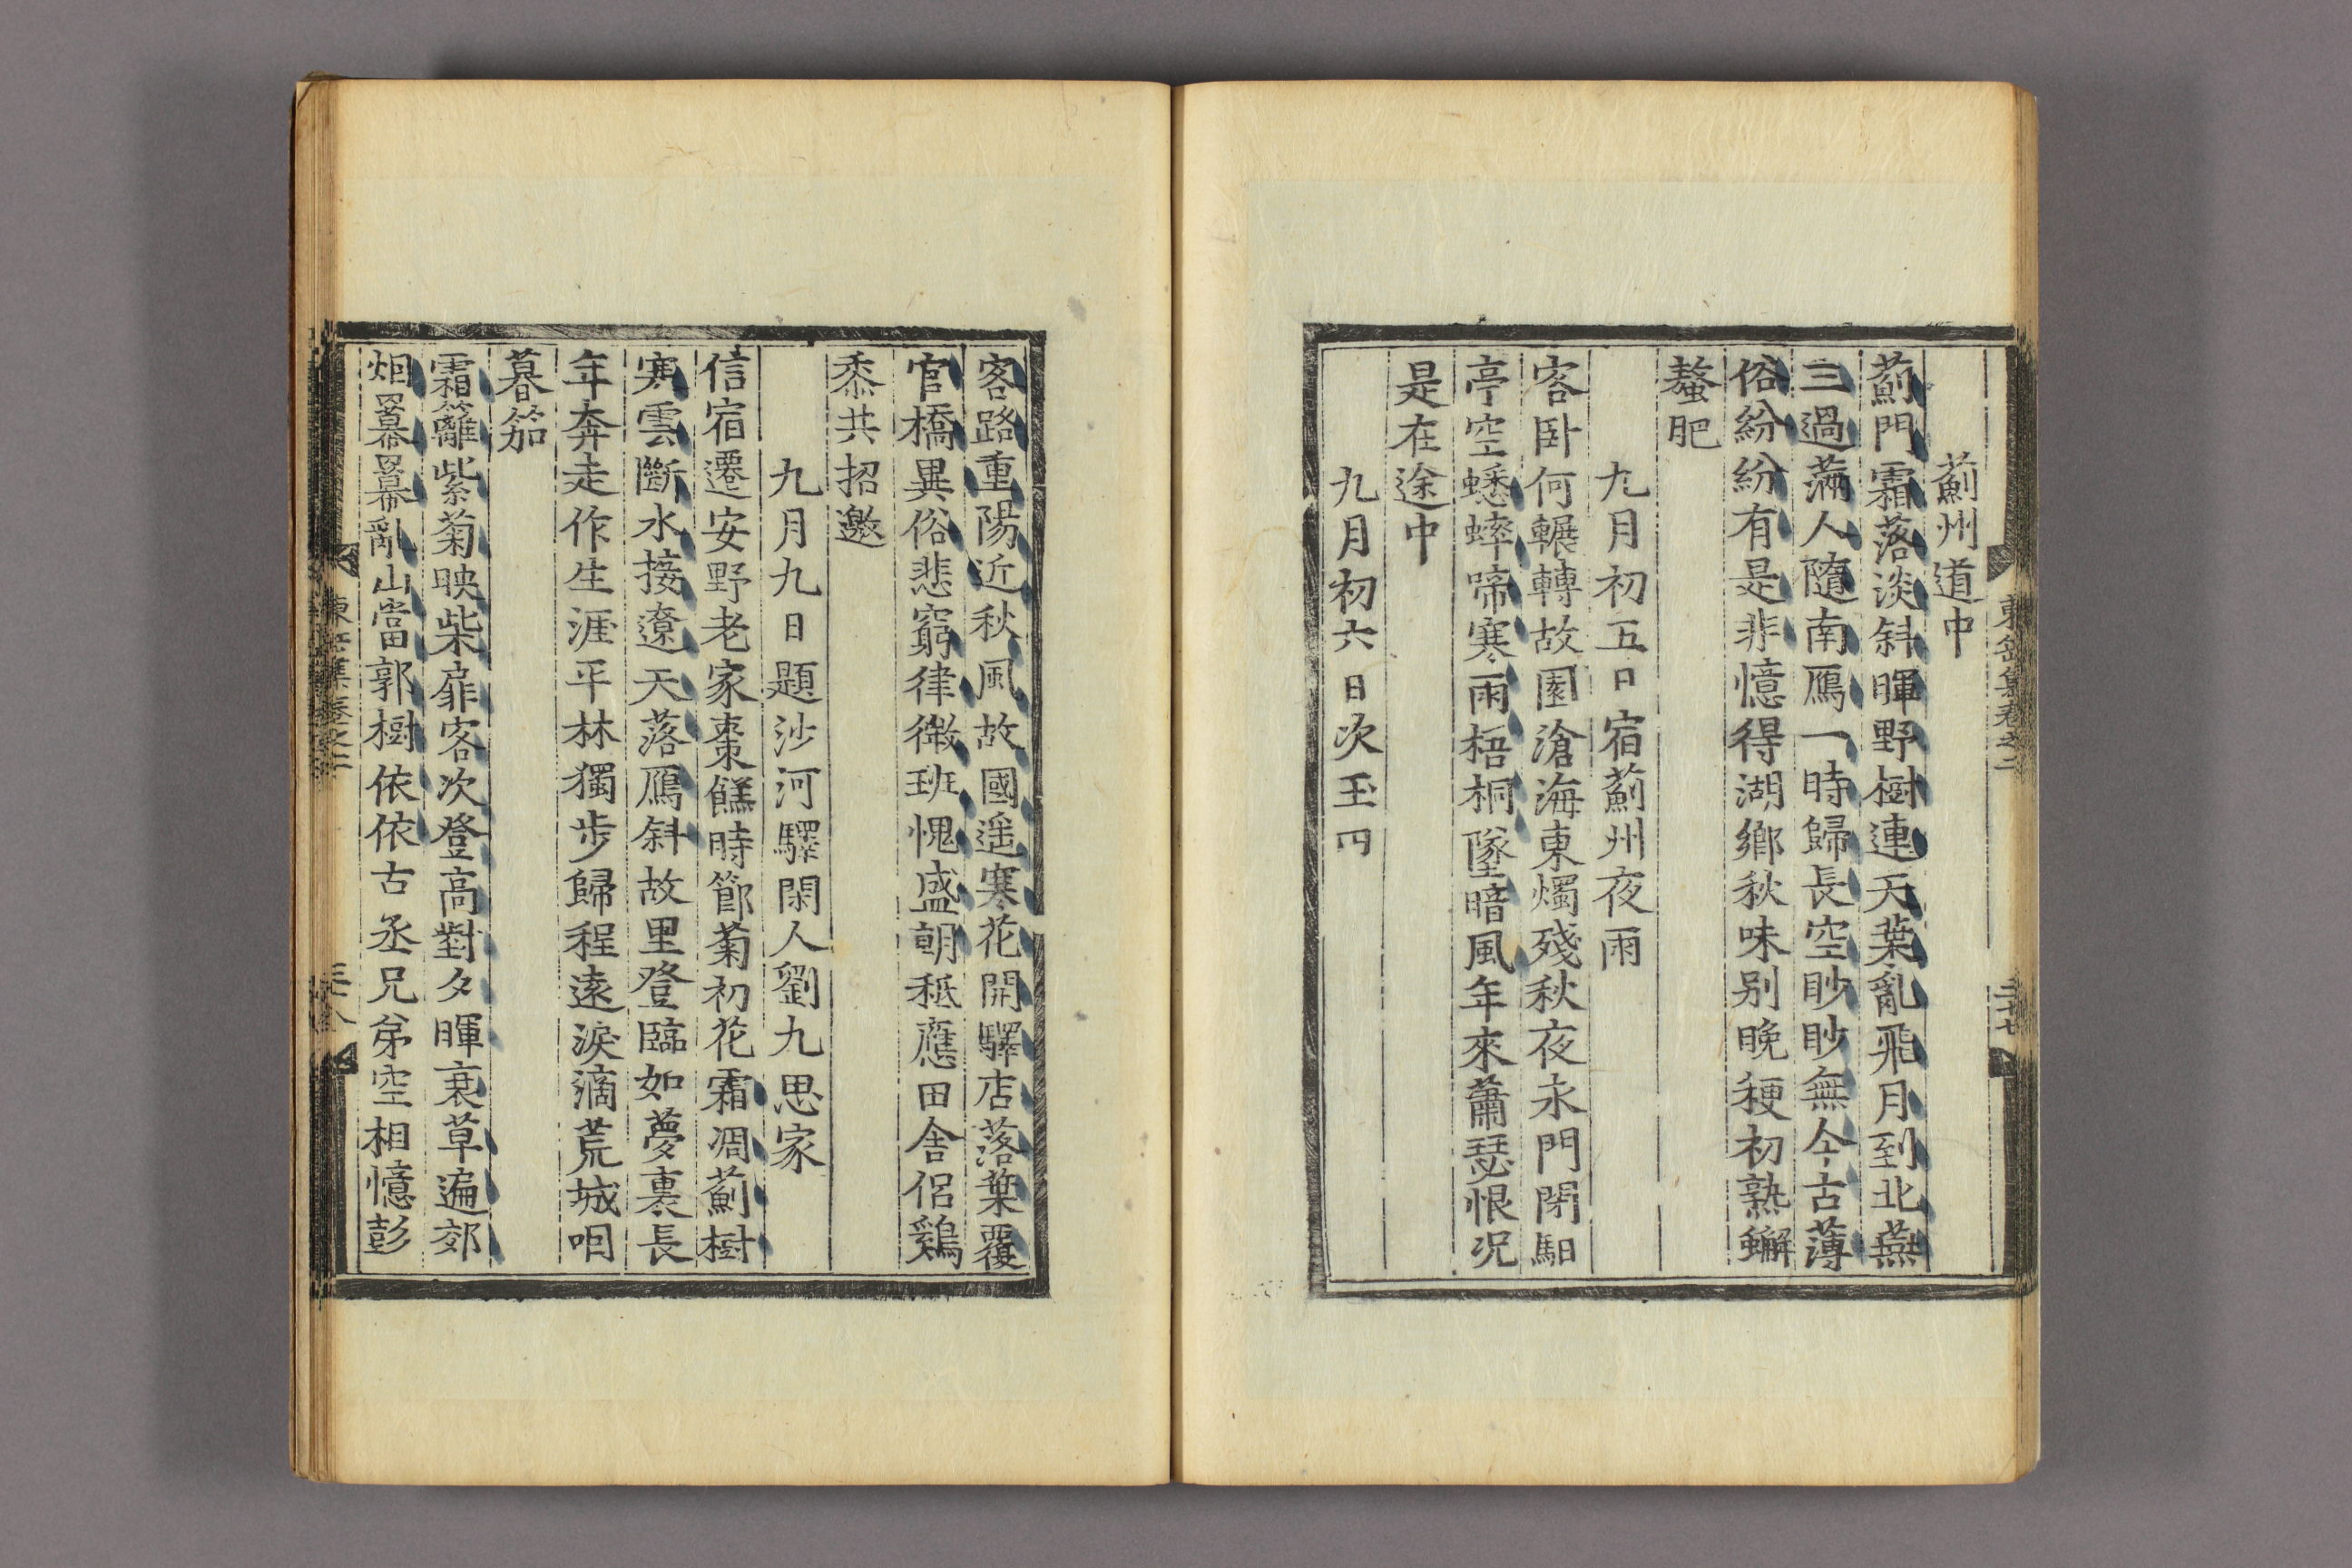 東岳集卷之二
三十七
薊州道中
薊門霜落淡斜暉野樹連天葉亂飛月到北燕
三過滿人隨南鴈一時歸長空眇眇無今古薄
俗紛紛有是非憶得湖鄉秋味別晚稉初熟蠏
螯肥
九月初五日宿薊州夜雨
客卧何輾轉故園滄海東燭殘秋夜永門閉馹
亭空蟋蟀啼寒雨梧桐墜暗風年來蕭瑟恨况
是在途中
九月初六日次玉田
客路重陽近秋風故國遥寒花開驛店落葉覆
官橋異俗悲窮律微班愧盛朝秪應田舍侶鷄
黍共招邀
九月九日題沙河驛閑人劉九思家
信宿遷安野老家棗餻時節菊初花霜凋薊樹
寒雲斷水接遼天落鴈斜故里登臨如夢裏長
年奔走作生涯平林獨步歸程遠淚滴荒城咽
暮笳
霜籬紫菊映柴扉客次登高對夕暉衰草遍郊
烟羃羃亂山當郭樹依依古丞兄弟空相憶彭
東岳集卷之二
三十八